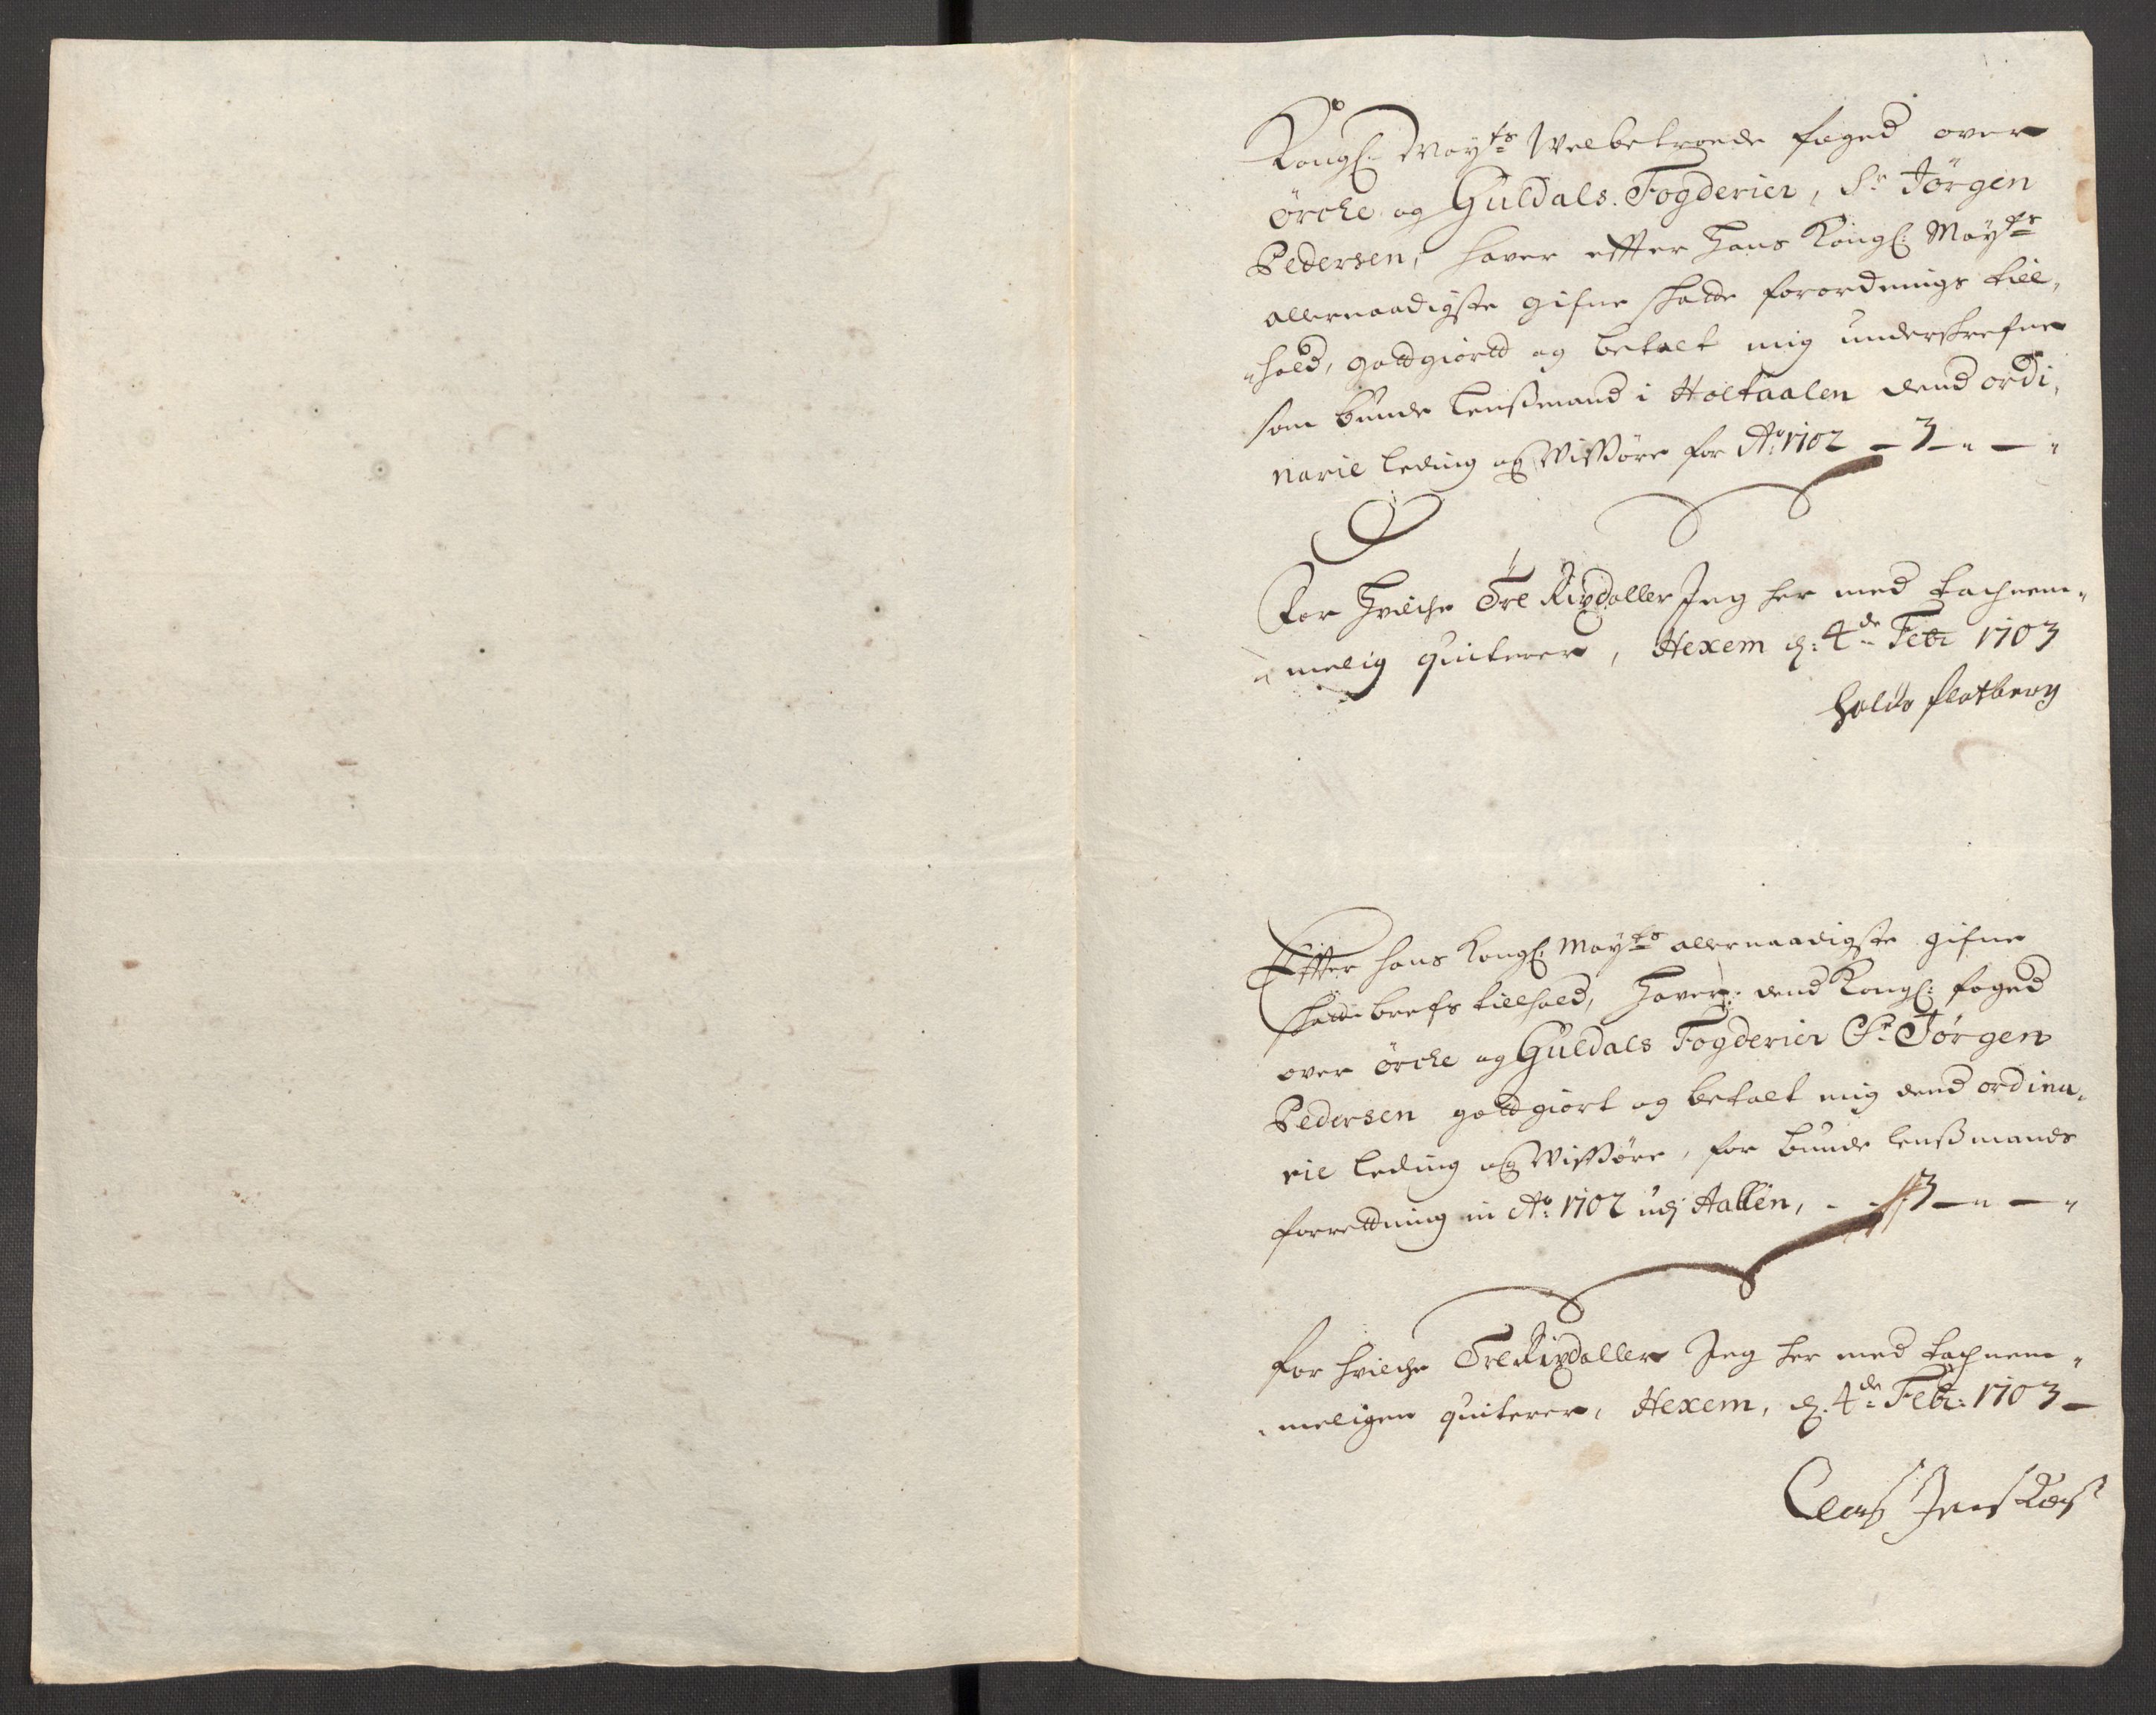 Kongl: Mayts Welbetroede foged over
Örche og Guldals Fogderier, Sr Jörgen
Pedersen, haver effter Hans Kongl: Mayts
allernaadigste gifne skatte forordnings till„
„hold, gottgiortt og betalt mig underskrefne
som bunde lenßmand i Holtaalen dend ordi„
narie leding og Wissöre for Ao: 1702 – 3 – „ – „
For Hvilche Tre Rixdaller Jeg her med tachnem„
„melig quiterer, Hexem d: 4de Febr 1703
Haldo flatberg
Effter Hans Kongl: Mayts allernaadigste gifne
skatte brefs tillhold, Haver dend Kongl: foged
over Örche og Guldals Fogderier Sr Jörgen
Pedersen gottgiort og betalt mig dend ordina„
rie leding og Wissöre, for bunde lenßmands
forrettning in Ao: 1702 udj Aallen, – – 3 – „ – „
for hvilche Tre Rixdaller Jeg her med tachnem„
„meligen quiterer, Hexem, d: 4de Febr: 1703 –
Claß